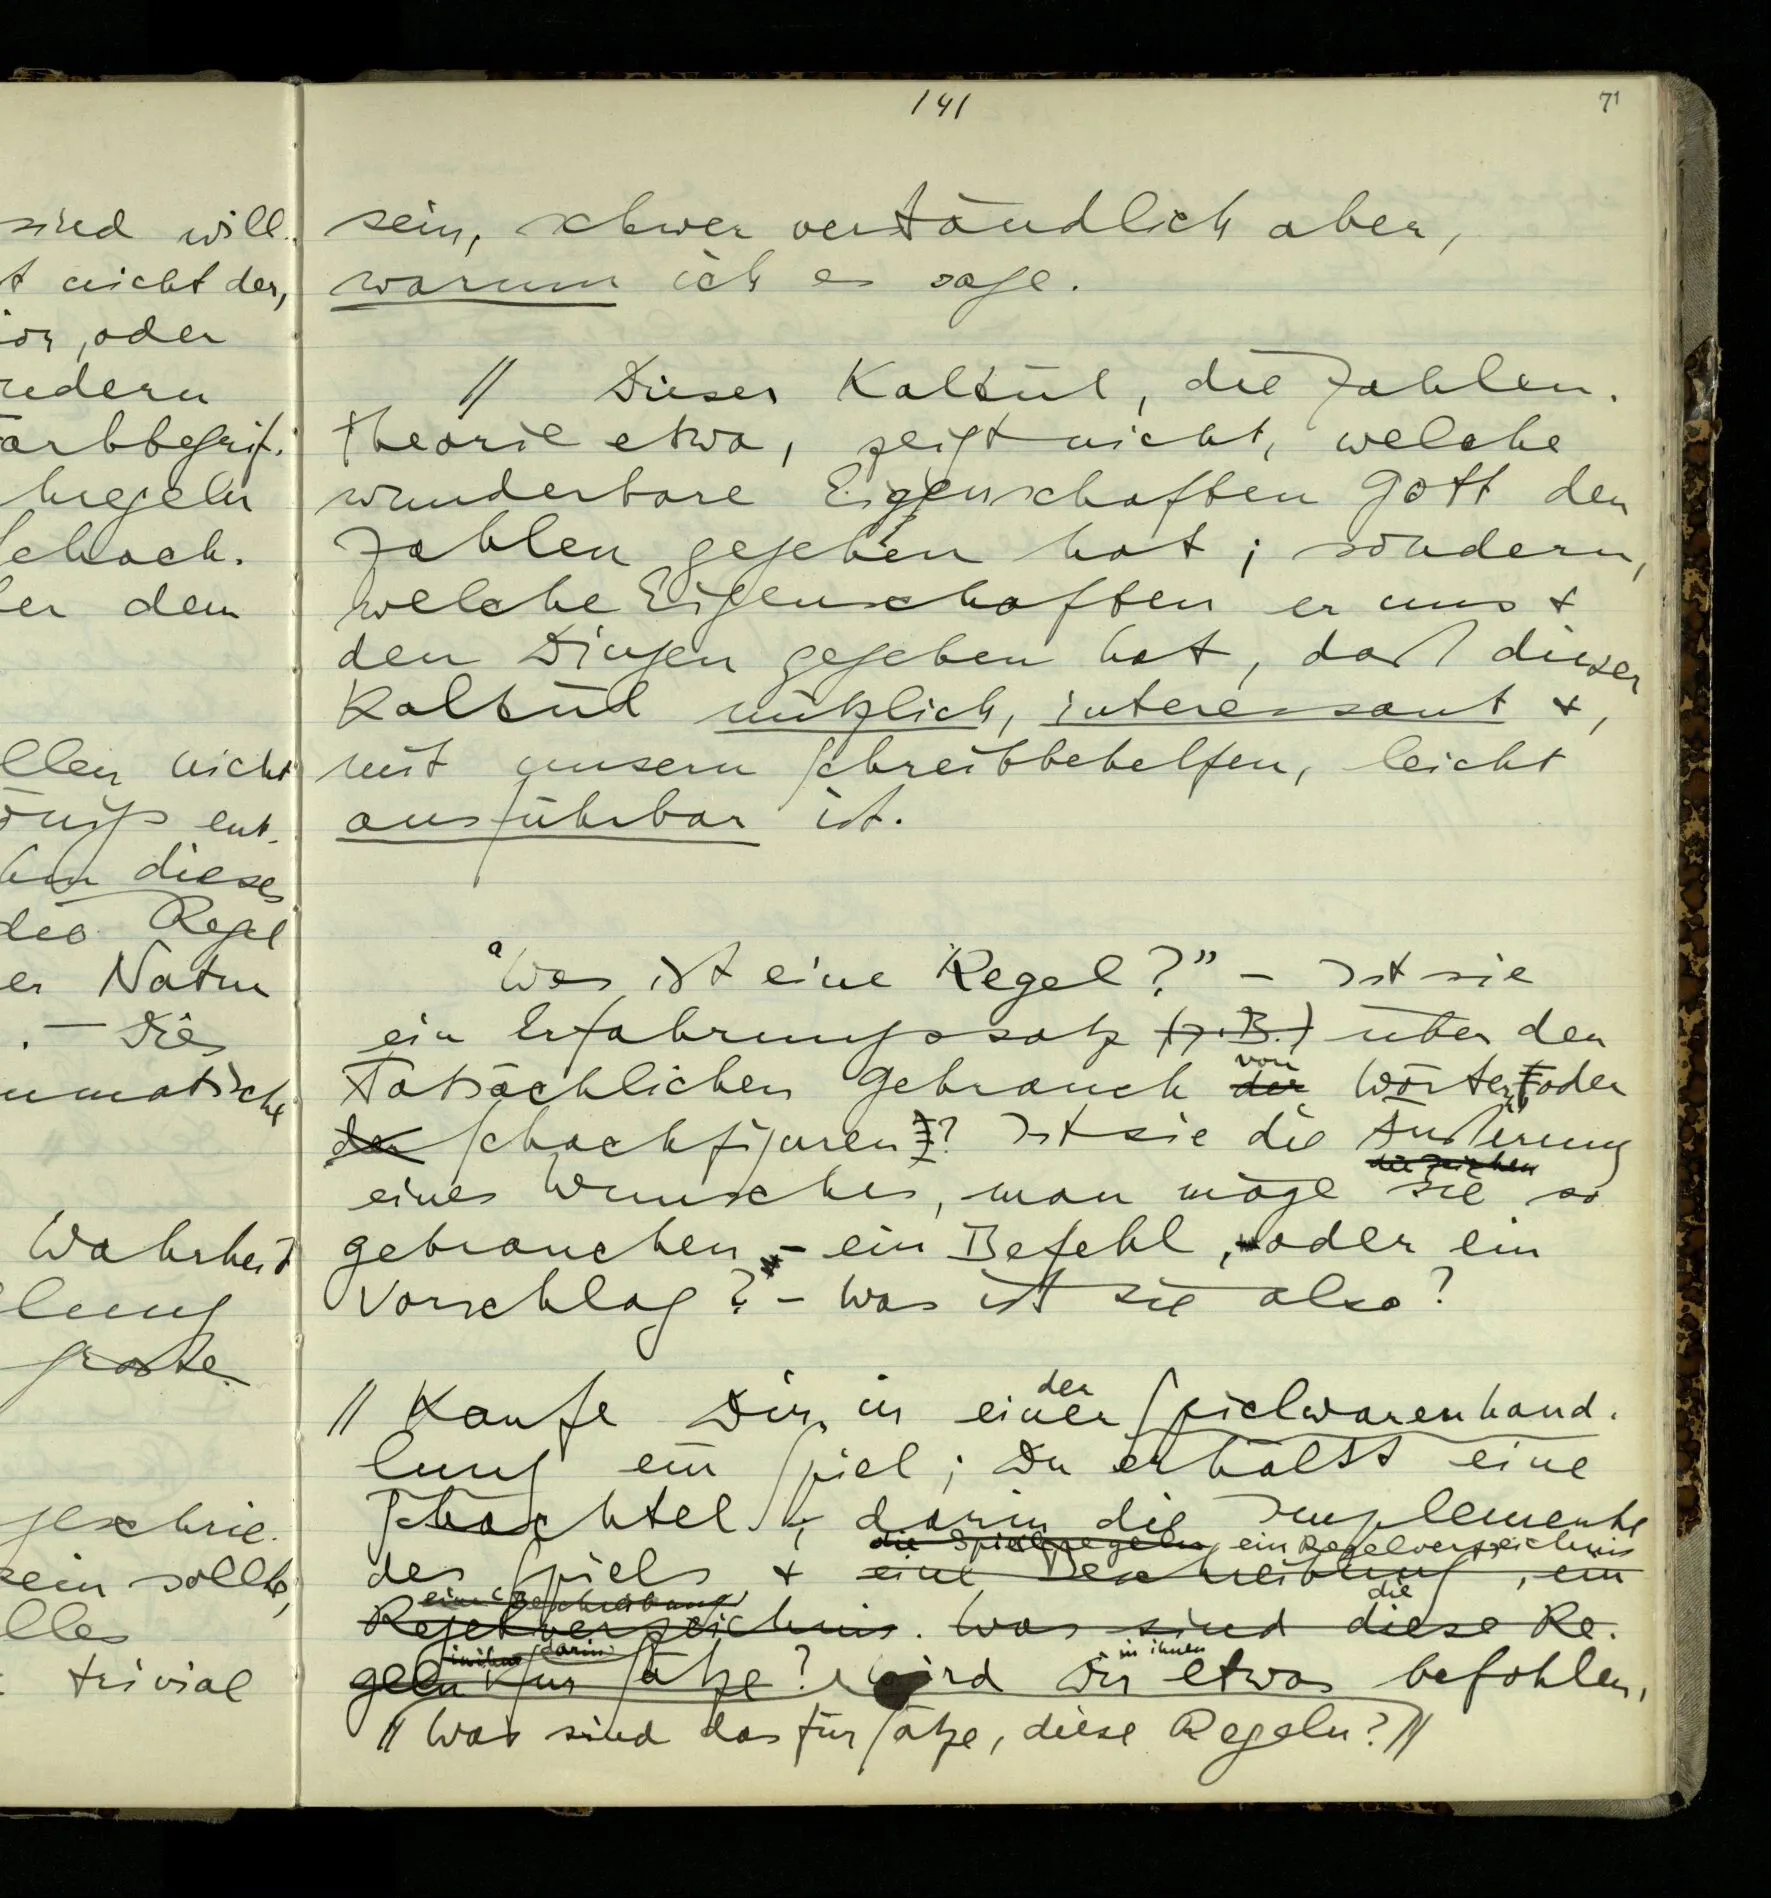 141
71
sind will.
t nicht der,
ior, oder
ndern
arbbegrif.
hregeln
Schach.
er dem
llen nicht
ent.
hm dieses
die Regel
er Natur
. — Die
mmatische
Wahrheit
lung
grosse
geschrie.
sein sollte,
lles
trivial
sein, schwer vertändlich aber,
warum ich es sage.
// Dieser Kalkül, die Zahlen.
theorie etwa, zeigt nicht, welche
wunderbare Eigenschaften Gott den
Zahlen gegeben hat; sondern,
welche Eigenschaften er uns +
den Dingen gegeben hat, daß dieser
Kalkül nützlich, interessant +,
mit unsern Schreibbehelfen, leicht
ausführbar ist.
"Was ist eine Regel?" – Ist sie
ein Erfahrungssatz (z.B.) über den
von
Tatsächlichen Gebrauch der Wörter oder
der Schachfiguren? Ist sie die Äußerung
die Zeichen
eines Wunsches, man möge sie so
gebrauchen – ein Befehl, oder ein
Vorschlag? – Was ist sie also?
der
// Kaufe Dir in einer Spielwarenhand.
lung ein Spiel; Du erhältst eine
Schachtel +, darin die Implemente
die Spielregeln, ein Regelverzeichnis
des Spiels + eine Beschreibung, ein
eine Beschreibung die
Regelverzeichnis. Was sind diese Re.
in ihnen darin in ihnen
geln für Sätze? Wird Dir etwas befohlen,
// Was sind das für Sätze, diese Regeln? //